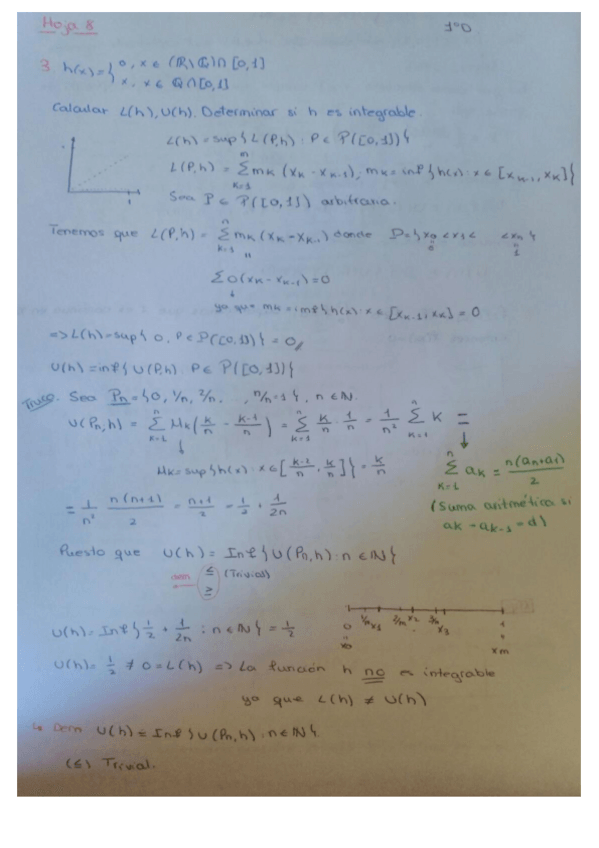 Hoja 8
1ºD
3 h(x) = { 0, x ∈ (ℝ\ℚ)∩[0,1]
x, x ∈ ℚ∩[0,1]
Calcular L(h), U(h). Determinar si h es integrable.
L(h) = sup { L(P,h) : P ∈ P([0,1]) }
L(P,h) = Σ mk (xk - xk-1), mk = inf { h(x) : x ∈ [xk-1, xk] }
Sea P ∈ P([0,1]) arbitraria.
Tenemos que L(P,h) = Σ mk (xk - xk-1) donde P = { x0 < x1 < < xn }
Σ 0 (xk - xk-1) = 0
ya que mk = inf { h(x) : x ∈ [xk-1, xk] = 0
=> L(h) = sup { 0, P ∈ P([0,1]) } = 0
U(h) = inf { U(P,h) P ∈ P([0,1]) }
Truco. Sea Pn = { 0, 1/n, 2/n, , n/n = 1 }, n ∈ ℕ.
U(Pn,h) = Σ Mk (k/n - k-1/n) = Σ k/n · 1/n = 1/n² Σ k =
Mk = sup { h(x) : x ∈ [k-1/n, k/n] } = k/n
Σ ak = n(an+a1)/2
(Suma aritmética si
ak - ak-1 = d)
= 1/n² n(n+1)/2 = n+1/2 = 1/2 + 1/2n
Puesto que U(h) = Inf { U(Pn,h) : n ∈ ℕ }
dem ≤ (Trivial)
≥
0 1/n x1 2/n x2 3/n x3 1
x0 xm
U(h) = Inf { 1/2 + 1/2n : n ∈ ℕ } = 1/2
U(h) = 1/2 ≠ 0 = L(h) => La función h no es integrable
ya que L(h) ≠ U(h)
Dem U(h) = Inf { U(Pn,h) : n ∈ ℕ }
(≤) Trivial.